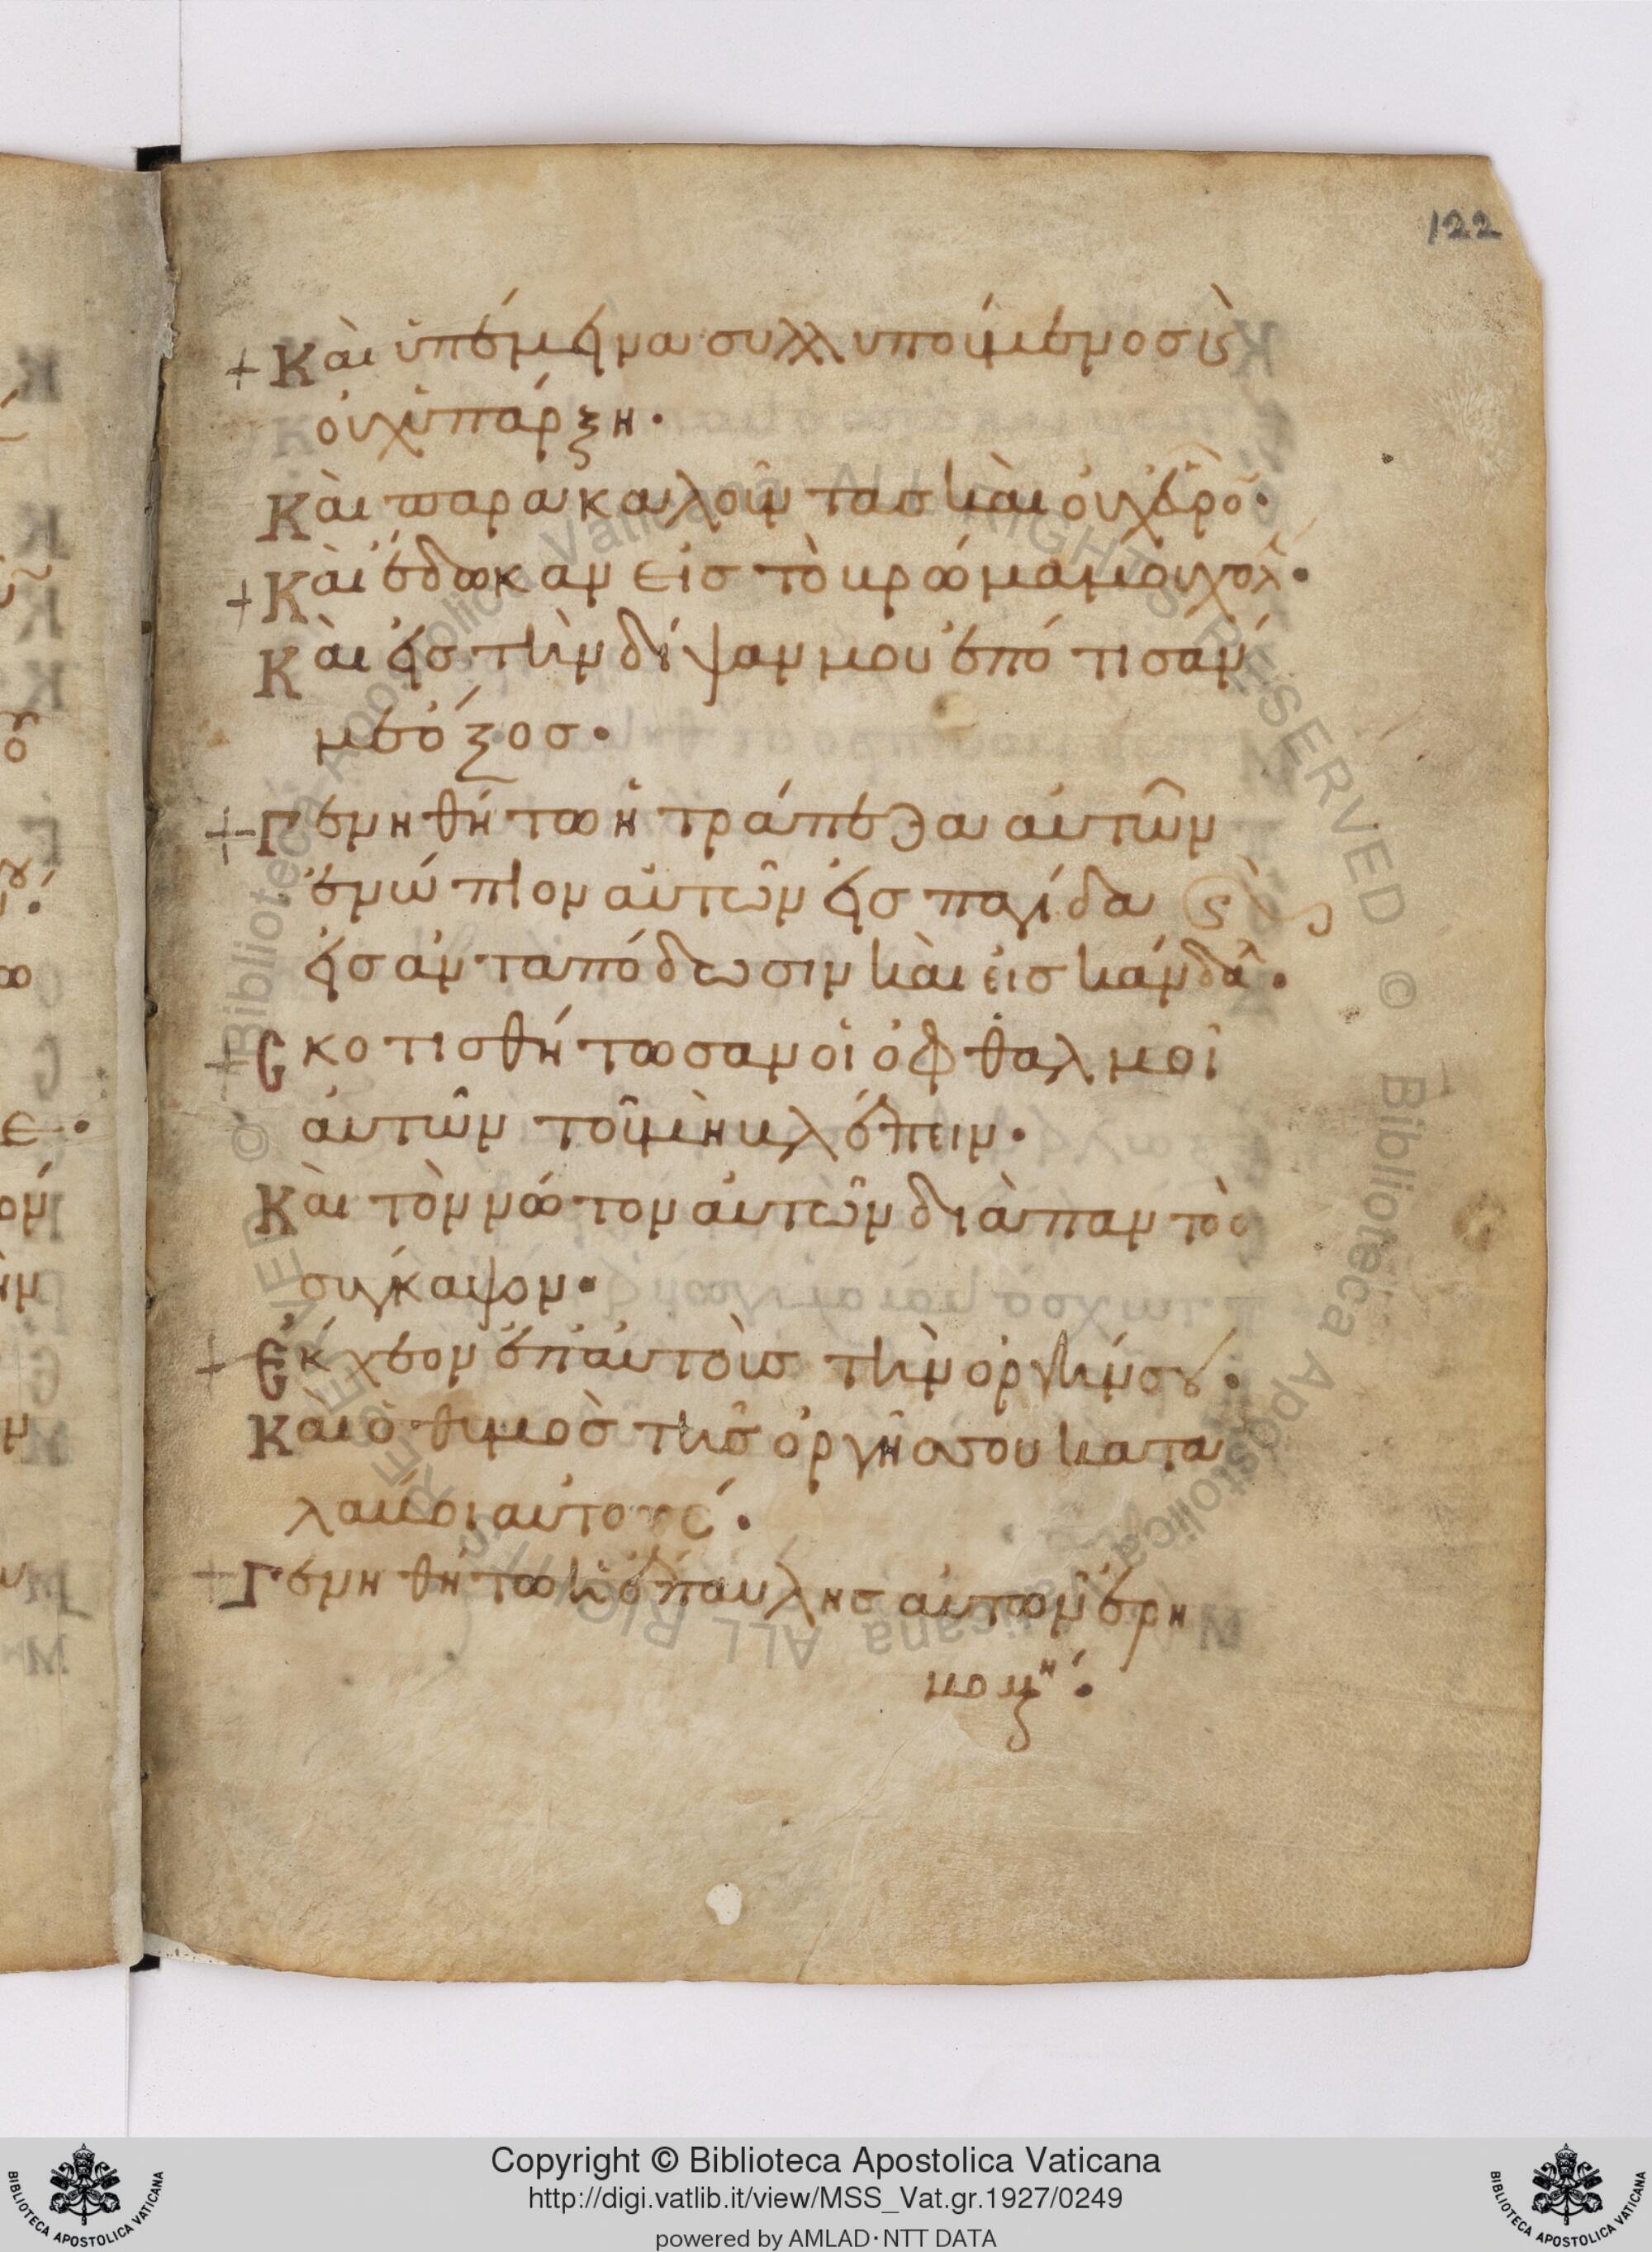 122
+ Καὶ ὑπέμεινα συλλυπούμενοσ ϗ
οὐχ ὑπάρξη·
Καὶ παρακαλοῦντασ καὶ οὐχ εὗρο̄·
+ Καὶ ἔδωκαν εἰσ τὸ βρῶμα μου χολ·
Καὶ εἰσ τὴν δίψαν μου ἐπότισάν
με ὄξοσ·
+ Γενηθήτω ἡ τράπεζα αὐτῶν
ἐνώπιον αὐτῶν εἰσ παγίδα ϗ
εἰσ ἀνταπόδωσιν καὶ εἰσ κάνδα·
+ Σκοτισθήτωσαν οἱ ὀφθαλμοὶ
αὐτῶν τοῦ μὴ βλέπειν·
Καὶ τὸν νῶτον αὐτῶν διὰ παντὸσ
συγκαμψον·
+ Ἔκχεον ἐπ αὐτοὺσ τὴν ὀργήν σου·
Και ὁ θυμὸσ τῆσ ὀργῆσ σου κατα
λαύοι αὐτουσ·
+ Γενηθήτω ἡ ἔπαυλησ αὐτῶν ἐρη
μομένη·
Copyright © Biblioteca Apostolica Vaticana
http://digi.vatlib.it/view/MSS_Vat.gr.1927/0249
powered by AMLAD·NTT DATA
BIBLIOTECA APOSTOLICA VATICANA
BIBLIOTECA APOSTOLICA VATICANA